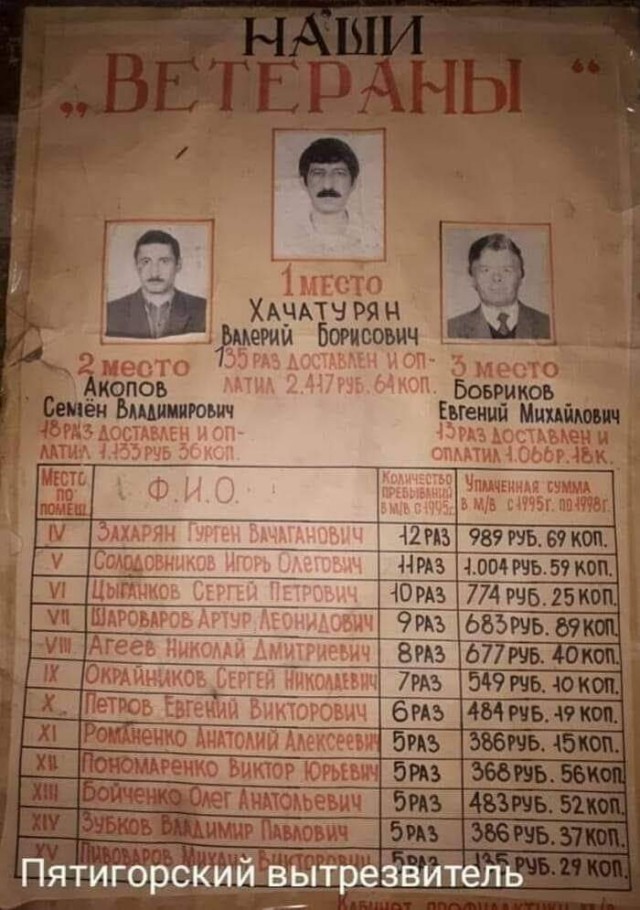 НАШИ
„ВЕТЕРАНЫ“
1 место
ХАЧАТУРЯН
Валерий Борисович
135 раз доставлен и оп-
латил 2.417 руб. 64 коп.
2 место
Акопов
Семён Владимирович
18 раз доставлен и оп-
латил 1.133 руб 36 коп.
3 место
Бобриков
Евгений Михайлович
13 раз доставлен и
оплатил 1.066 р. 18 к.
Место по помещ. Ф.И.О. Количество пребываний в м/в с 1995г. Уплаченная сумма в м/в с 1995г. по 1998г.
IV Захарян Гурген Вачаганович 12 раз 989 руб. 69 коп.
V Солодовников Игорь Олегович 11 раз 1.004 руб. 59 коп.
VI Цыганков Сергей Петрович 10 раз 774 руб. 25 коп.
VII Шароваров Артур Леонидович 9 раз 683 руб. 89 коп.
VIII Агеев Николай Дмитриевич 8 раз 677 руб. 40 коп.
IX Окрайников Сергей Николаевич 7 раз 549 руб. 10 коп.
X Петров Евгений Викторович 6 раз 484 руб. 19 коп.
XI Романенко Анатолий Алексеевич 5 раз 386 руб. 15 коп.
XII Пономаренко Виктор Юрьевич 5 раз 368 руб. 56 коп
XIII Бойченко Олег Анатольевич 5 раз 483 руб. 52 коп.
XIV Зубков Владимир Павлович 5 раз 386 руб. 37 коп.
XV Пивоваров Михаил Викторович 5 раз руб. 29 коп.
Пятигорский вытрезвитель
Кабинет профилактики